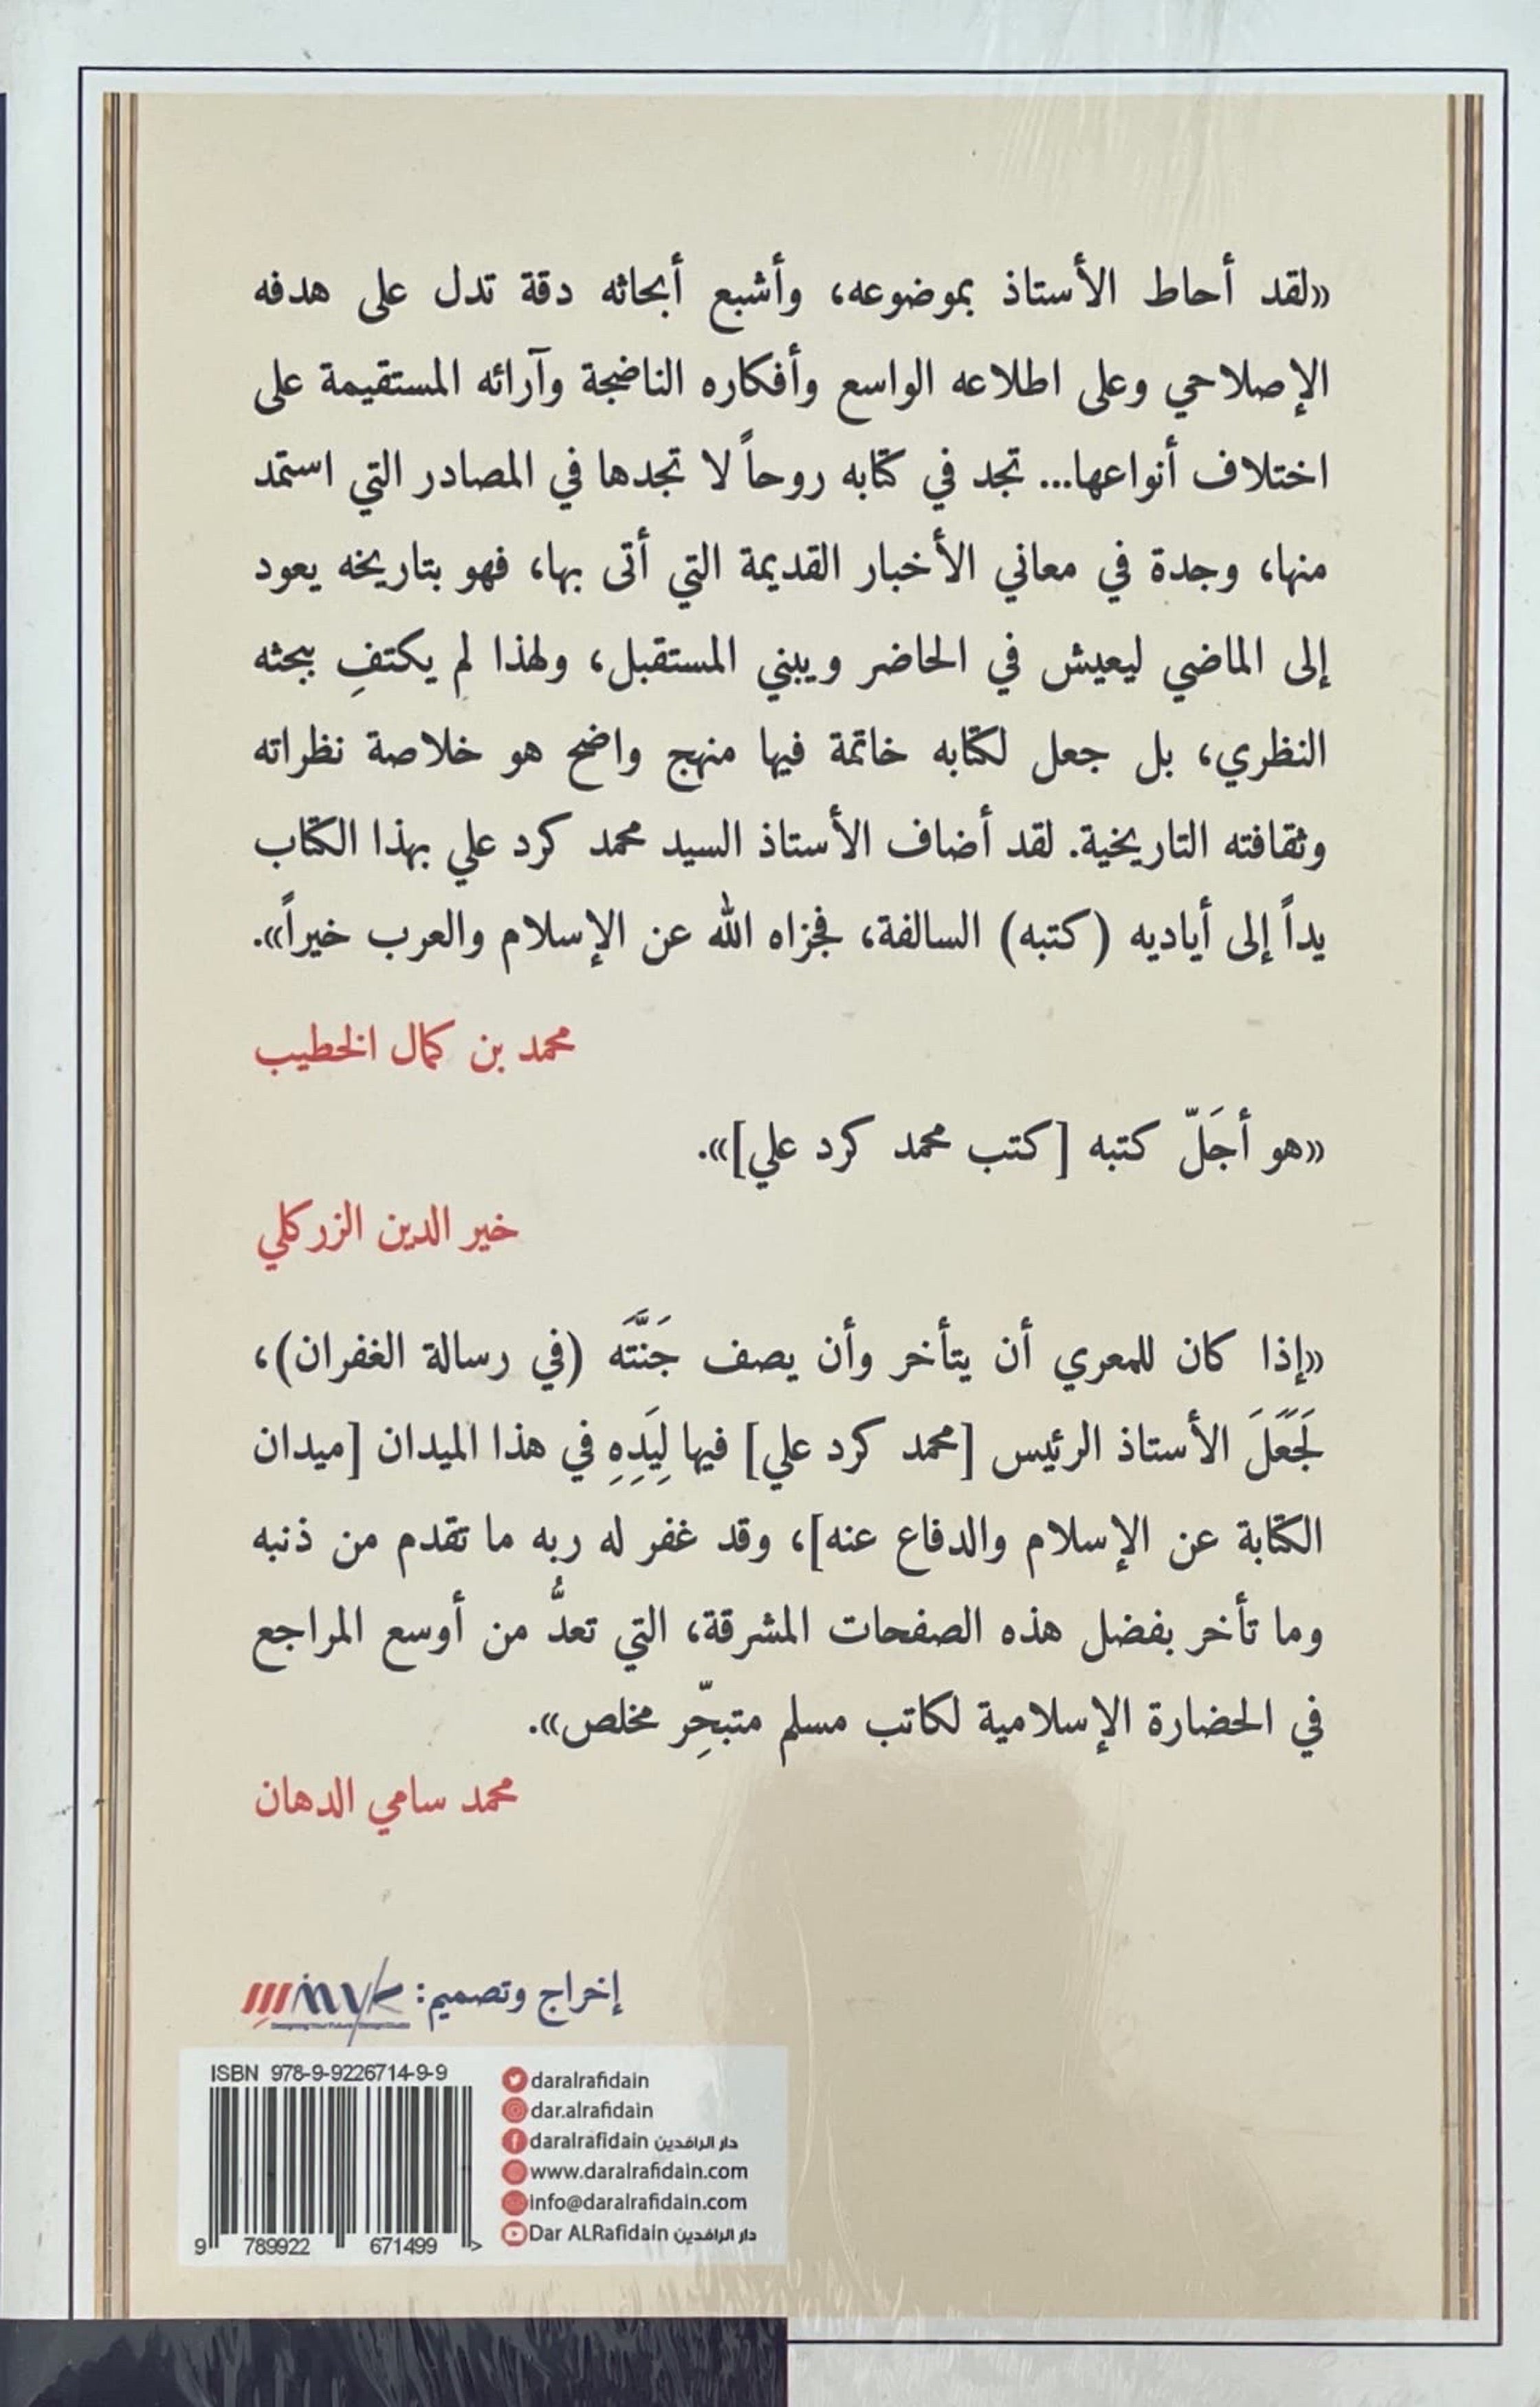 «لقد أحاط الأستاذ بموضوعه، وأشبع أبحاثه دقة تدل على هدفه
الإصلاحي وعلى اطلاعه الواسع وأفكاره الناضجة وآرائه المستقيمة على
اختلاف أنواعها... تجد في كتابه روحاً لا تجدها في المصادر التي استمد
منها، وجدة في معاني الأخبار القديمة التي أتى بها، فهو بتاريخه يعود
إلى الماضي ليعيش في الحاضر ويبني المستقبل، ولهذا لم يكتفِ ببحثه
النظري، بل جعل لكتابه خاتمة فيها منهج واضح هو خلاصة نظراته
وثقافته التاريخية. لقد أضاف الأستاذ السيد محمد كرد علي بهذا الكتاب
يداً إلى أياديه (كتبه) السالفة، فجزاه الله عن الإسلام والعرب خيراً».
محمد بن كمال الخطيب
«هو أجَلّ كتبه [كتب محمد كرد علي]».
خير الدين الزركلي
«إذا كان للمعري أن يتأخر وأن يصف جَنَّتَه (في رسالة الغفران)،
لَجَعَلَ الأستاذ الرئيس [محمد كرد علي] فيها لِيَدِهِ في هذا الميدان [ميدان
الكتابة عن الإسلام والدفاع عنه]، وقد غفر له ربه ما تقدم من ذنبه
وما تأخر بفضل هذه الصفحات المشرقة، التي تعدُّ من أوسع المراجع
في الحضارة الإسلامية لكاتب مسلم متبحِّر مخلص».
محمد سامي الدهان
إخراج وتصميم:
ISBN 978-9-9226714-9-9
9 789922 671499 >
daralrafidain
dar.alrafidain
daralrafidain دار الرافدين
www.daralrafidain.com
info@daralrafidain.com
Dar ALRafidain دار الرافدين